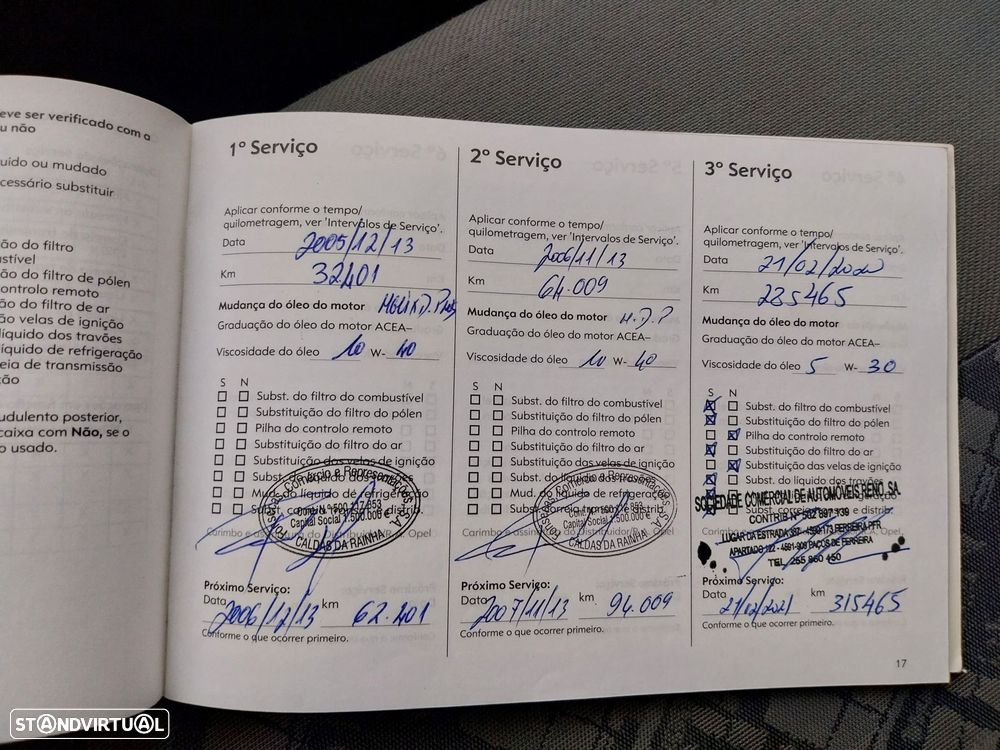 eve ser verificado com a
u não
uído ou mudado
cessário substituir
ão do filtro
ustível
ão do filtro de pólen
controlo remoto
ão do filtro de ar
ão velas de ignição
líquido dos travões
íquido de refrigeração
eia de transmissão
ção
udulento posterior,
caixa com Não, se o
o usado.
1º Serviço
Aplicar conforme o tempo/
quilometragem, ver 'Intervalos de Serviço'.
Data 2005/12/13
Km 32401
Mudança do óleo do motor
Graduação do óleo do motor ACEA–
Viscosidade do óleo 10 W- 40
S N
Subst. do filtro do combustível
Substituição do filtro do pólen
Pilha do controlo remoto
Substituição do filtro do ar
Substituição das velas de ignição
Subst. do líquido dos
Mud. do líquido de refrigeração
Subst. correia
CALDAS DA RAINHA
Próximo Serviço:
Data 2006/12/13 km 62.401
Conforme o que ocorrer primeiro.
2º Serviço
Aplicar conforme o tempo/
quilometragem, ver 'Intervalos de Serviço'.
Data 2006/11/13
Km 64.009
Mudança do óleo do motor H.D.P
Graduação do óleo do motor ACEA–
Viscosidade do óleo 10 W- 40
S N
Subst. do filtro do combustível
Substituição do filtro do pólen
Pilha do controlo remoto
Substituição do filtro do ar
Substituição das velas de ignição
Subst. do líquido dos travões
Mud. do líquido de refrigeração
Subst. correia transm. e distrib.
Capital Social 1.500.000 €
CALDAS DA RAINHA
Opel
Próximo Serviço:
Data 2007/11/13 km 94.009
Conforme o que ocorrer primeiro.
3º Serviço
Aplicar conforme o tempo/
quilometragem, ver 'Intervalos de Serviço'.
Data 21/02/2020
Km 285465
Mudança do óleo do motor
Graduação do óleo do motor ACEA–
Viscosidade do óleo 5 W- 30
S N
Subst. do filtro do combustível
Substituição do filtro do pólen
Pilha do controlo remoto
Substituição do filtro do ar
Substituição das velas de ignição
Subst. do líquido dos travões
SOCIEDADE COMERCIAL DE AUTOMÓVEIS RENO, SA.
CONTRIB Nº 502 897 139
LUGAR DA ESTRADA
PAÇOS DE FERREIRA
TEL. 255 860 450
Próximo Serviço:
Data 21/02/2021 km 315465
Conforme o que ocorrer primeiro.
17
STANDVIRTUAL